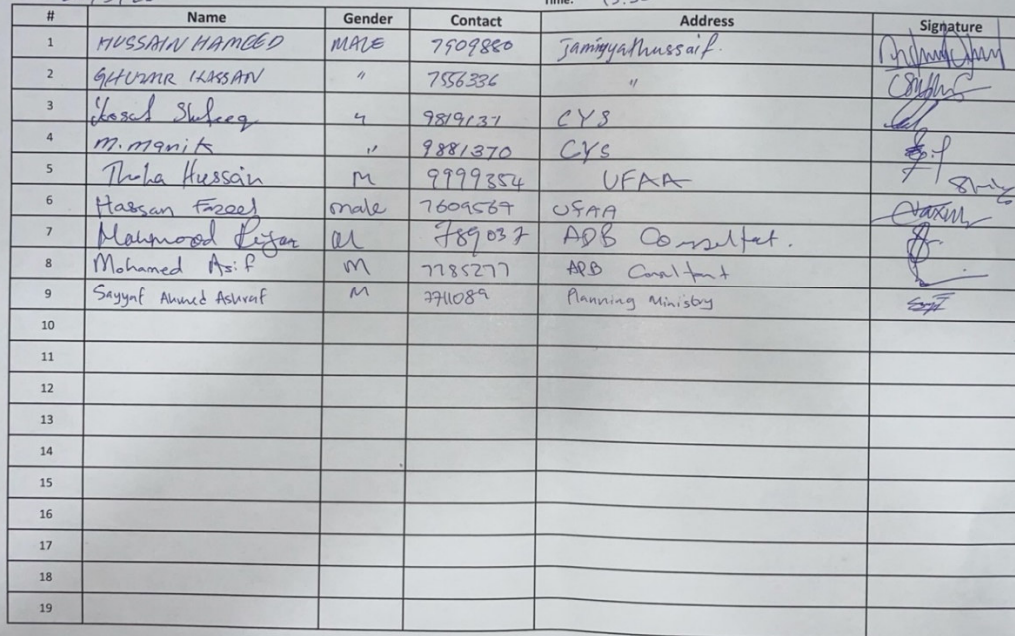 # Name Gender Contact Address Signature
1 HUSSAIN HAMEED MALE 7909880 Jamiyyathussaif.
2 HASSAN " 7556336 "
3 " 9819131 CYS
4 M. Manik " 9881370 CYS
5 Thoha Hussain M 9999354 UFAA
6 Hassan Fazeel male 7609567 UFAA
7 Mahmood Riyaz M 789037 ADB Consultat.
8 Mohamed Asif M 7785277 ADB Consltant
9 Sayyaf Ahmed Ashraf M 7711089 Planning Ministry
10
11
12
13
14
15
16
17
18
19